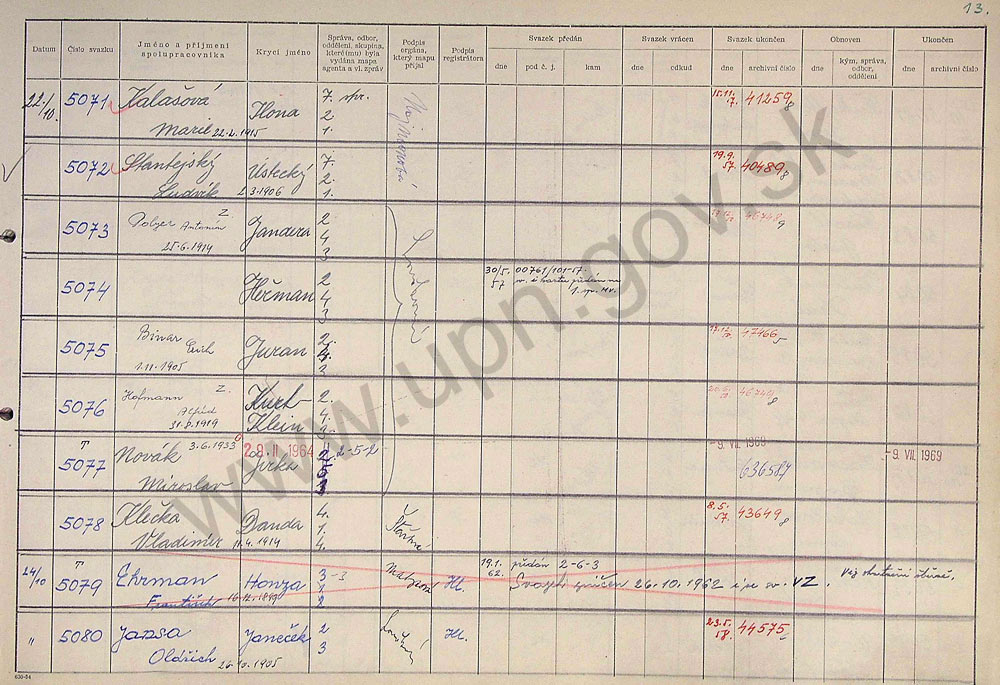 13.
Datum Číslo svazku Jméno a příjmení spolupracovníka Krycí jméno Správa, odbor, oddělení, skupina, které(mu) byla vydána mapa agenta a vl. zpráv Podpis orgána, který mapu přijal Podpis registrátora Svazek předán Svazek vrácen Svazek ukončen Obnoven Ukončen
dne pod č. j. kam dne odkud dne archivní číslo dne kým, správa, odbor, oddělení dne archivní číslo
22./10. 5071 Kalašová Ilona 7. spr. 15.11. 57. 41259/8
Marie 22.2.1915 2. 1.
5072 Stantejský Ústecký 7. 19.9. 57. 40489/8
Ludvík 2.3.1906 2. 1.
5073 Antonín Z Jandera 2 4 3
25.6.1914
5074 Heřman 2 4 3 30/5. 57 00761/101-57
5075 Binar Erich Juran 2. 4. 3 47466/5
1.11.1905
5076 Hofmann Z. Kurt 2.
Alfréd Klein 4.
31.8.1919
5077 T Novák 3.6.1933 28. II. 1964 Jirka 2-52 -9. VII. 1969 -9. VII. 1969
Miroslav 636587
5078 Klečka Danda 4. 8.5. 57. 43649/8
Vladimír 11.4.1914 1. 4.
24/10 5079 T Ehrman Honza 3-3 Hl. 19.1. 62. předán 2-6-3
František 16.12.1899 Svazek zničen 26.10.1962 VZ.
" 5080 Jazsa Janeček 2 Hl. 23.5. 58. 44575
Oldřich 26.10.1905 3
630-54
www.upn.gov.sk